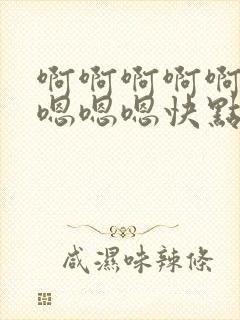 啊啊啊啊啊
嗯嗯嗯快點
咸濕味辣條